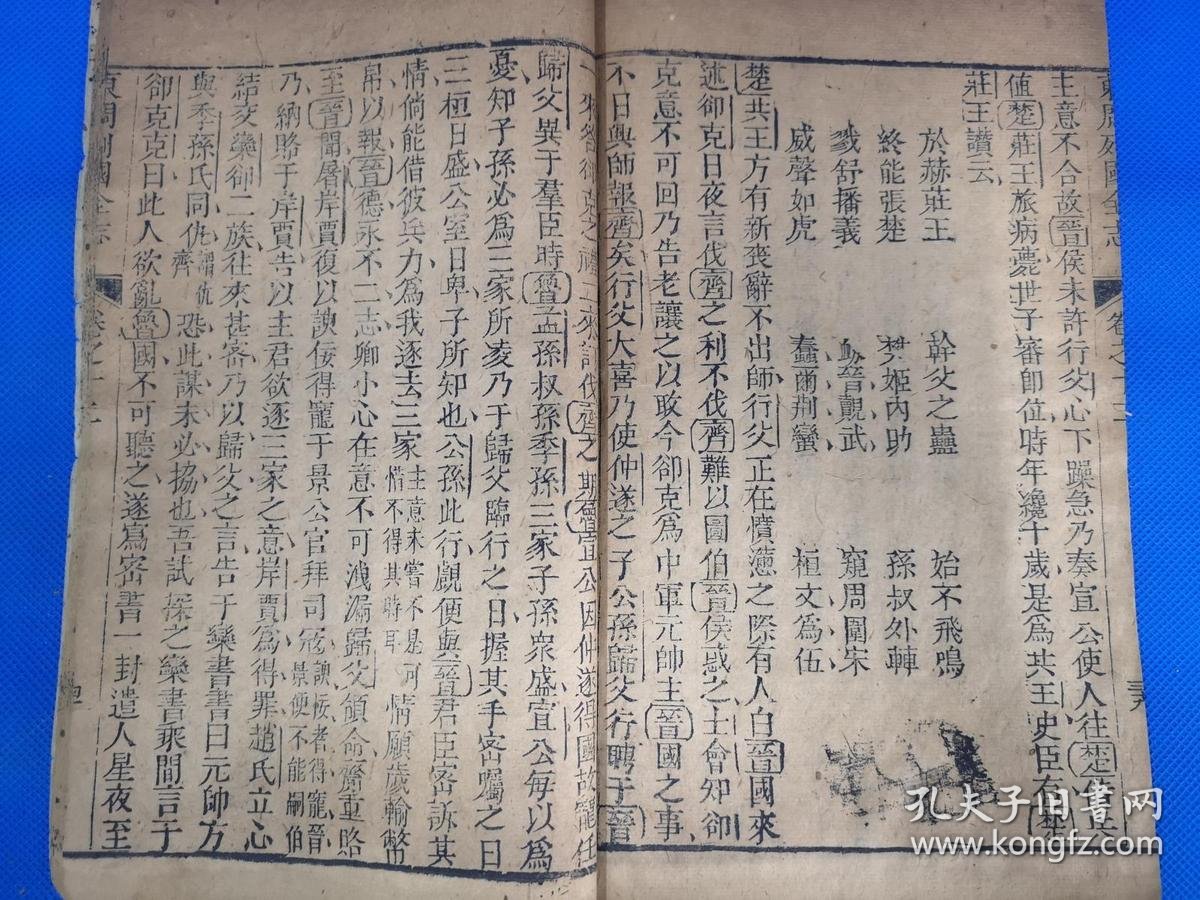 東周列國全志
卷之十三
主意不合故晉侯未許行父心下躁急乃奏宣公使人往楚
值楚莊王旅病薨世子審即位時年纔十歲是爲共王史臣有楚
莊王讚云
於赫莊王 幹父之蠱 始不飛鳴
終能張楚 樊姬內助 孫叔外輔
戮舒播義 衂晉覿武 窺周圍宋
威聲如虎 蠢爾荆蠻 桓文爲伍
楚共王方有新喪辭不出師行父正在憤懣之際有人自晉國來
述郤克日夜言伐齊之利不伐齊難以圖伯晉侯惑之士會知郤
克意不可回乃告老讓之以政今郤克爲中軍元帥主晉國之事
不日興師報齊矣行父大喜乃使仲遂之子公孫歸父行聘于晉
一來答郤克之禮二來訂伐齊之期魯宣公因仲遂得國故寵任
歸父異于羣臣時魯孟孫叔孫季孫三家子孫衆盛宣公每以爲
憂知子孫必爲三家所凌乃于歸父臨行之日握其手密囑之曰
三桓日盛公室日卑子所知也公孫此行覷便與晉君臣密訴其
情倘能借彼兵力爲我逐去三家主意未嘗不是可惜不得其時耳情願歲輸幣
帛以報晉德永不二志卿小心在意不可洩漏歸父領命齎重賂
至晉聞屠岸賈復以諛佞得寵于景公官拜司冦諛佞者得寵晉景便不能嗣伯
乃納賂于岸賈告以主君欲逐三家之意岸賈爲得罪趙氏立心
結交欒郤二族往來甚密乃以歸父之言告于欒書書曰元帥方
與季孫氏同仇謂仇齊恐此謀未必協也吾試探之欒書乘間言于
郤克克曰此人欲亂魯國不可聽之遂寫密書一封遣人星夜至
東周列國全志
卷之十三
孔夫子旧書网
www.kongfz.com